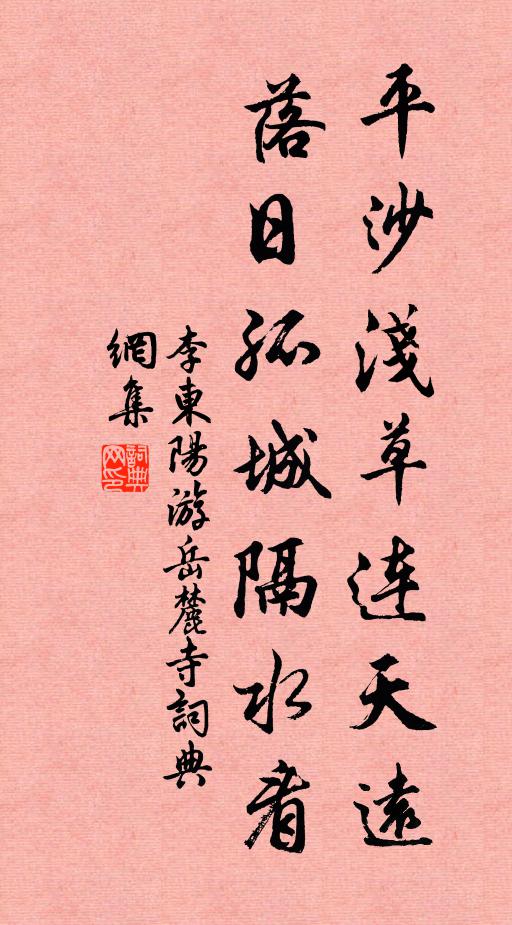 平沙淺草連天遠
落日孤城隔水看
李東陽游岳麓寺詞典
網集
詞典
网印